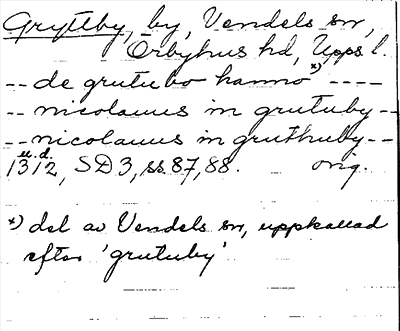 Gryttby, by, Vendels sn,
Örbyhus hd, Upps l.
-- de grutubo hamno x) ----
-- nicolauus in grutuby --
-- nicolauus in gruthuby --
u.d.
1312, SD 3, ss. 87, 88. orig.
x) del av Vendels sn, uppkallad
efter 'grutuby'